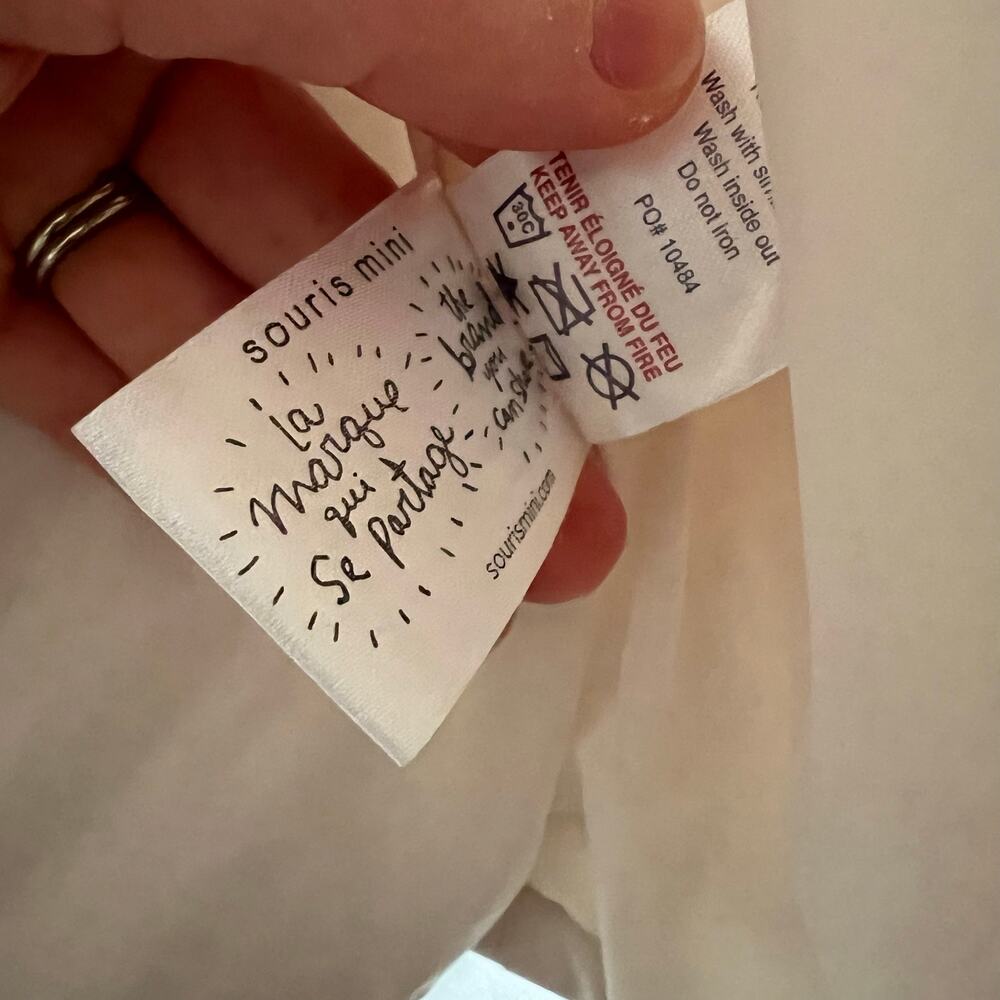 souris mini
La
marque
qui
Se partage
the
brand
you
can
sourismini.com
TENIR ÉLOIGNÉ DU FEU
KEEP AWAY FROM FIRE
30C
PO# 10484
Wash with
Wash inside out
Do not Iron